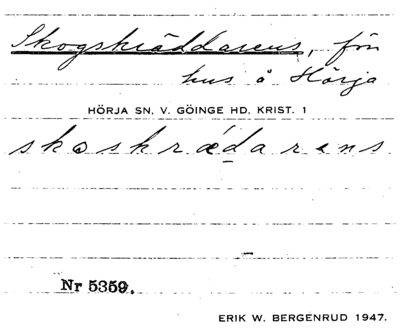 Skogskräddarens, frn
hus å Hörja
HÖRJA SN. V. GÖINGE HD. KRIST. 1
skoskrædarens
Nr 5359.
ERIK W. BERGENRUD 1947.